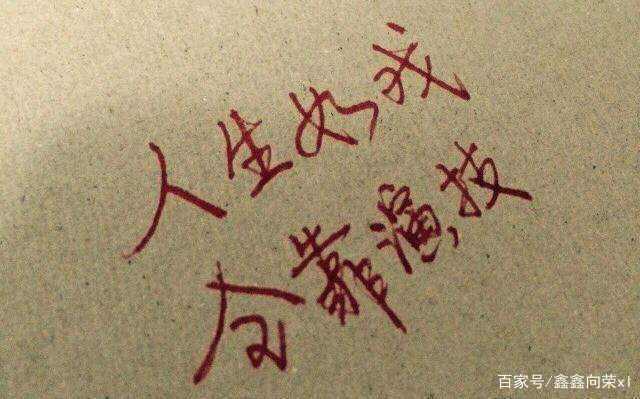 人生如戏
全靠演技
百家号/鑫鑫向荣xl